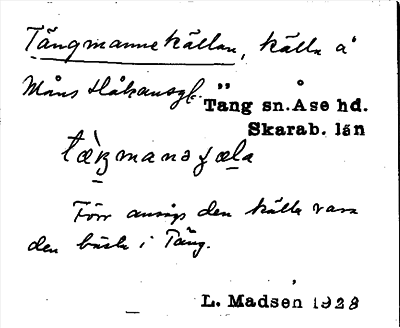 Tängmannekällan, källa å
Måns Håkansg.
Täng sn. Åse hd.
Skarab. län
Förr ansågs den källa vara
den bästa i Täng.
L. Madsen 1928